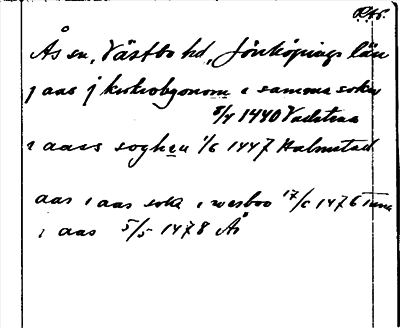 RAp.
Ås sn, Västbo hd, Jönköpings län
j aas j kirkiobyenom i samma sokn
5/4 1440 Vadstena
i aass soghen 1/6 1447 Halmstad
aas i aas sokn i wesboo 17/6 1476 Tuna
i aas 5/5 1478 Ås